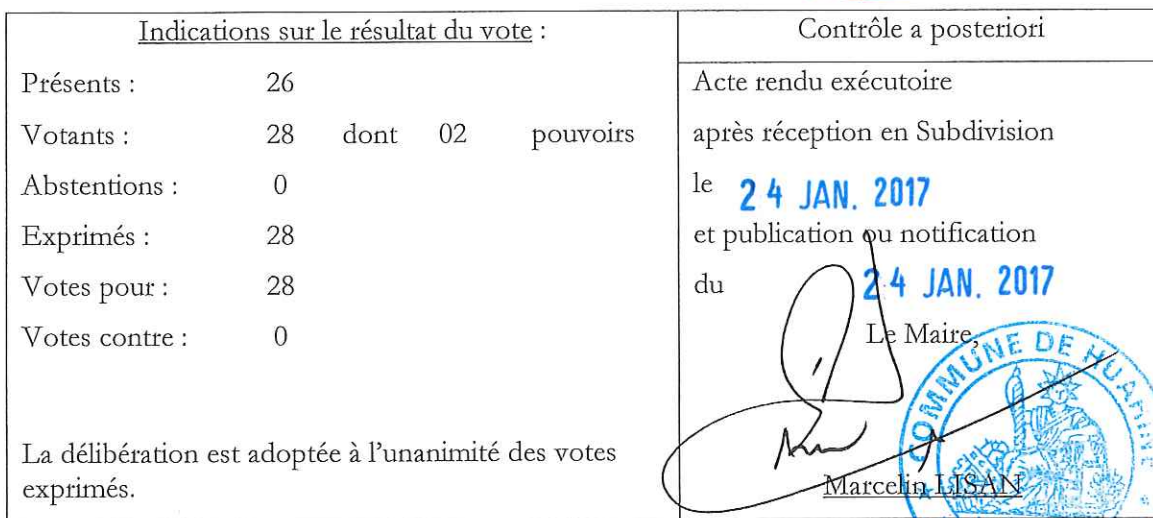 Indications sur le résultat du vote :
Présents : 26
Votants : 28 dont 02 pouvoirs
Abstentions : 0
Exprimés : 28
Votes pour : 28
Votes contre : 0
La délibération est adoptée à l'unanimité des votes
exprimés.
Contrôle a posteriori
Acte rendu exécutoire
après réception en Subdivision
le 24 JAN. 2017
et publication ou notification
du 24 JAN. 2017
Le Maire,
COMMUNE DE HUAHINE
Marcelin LISAN